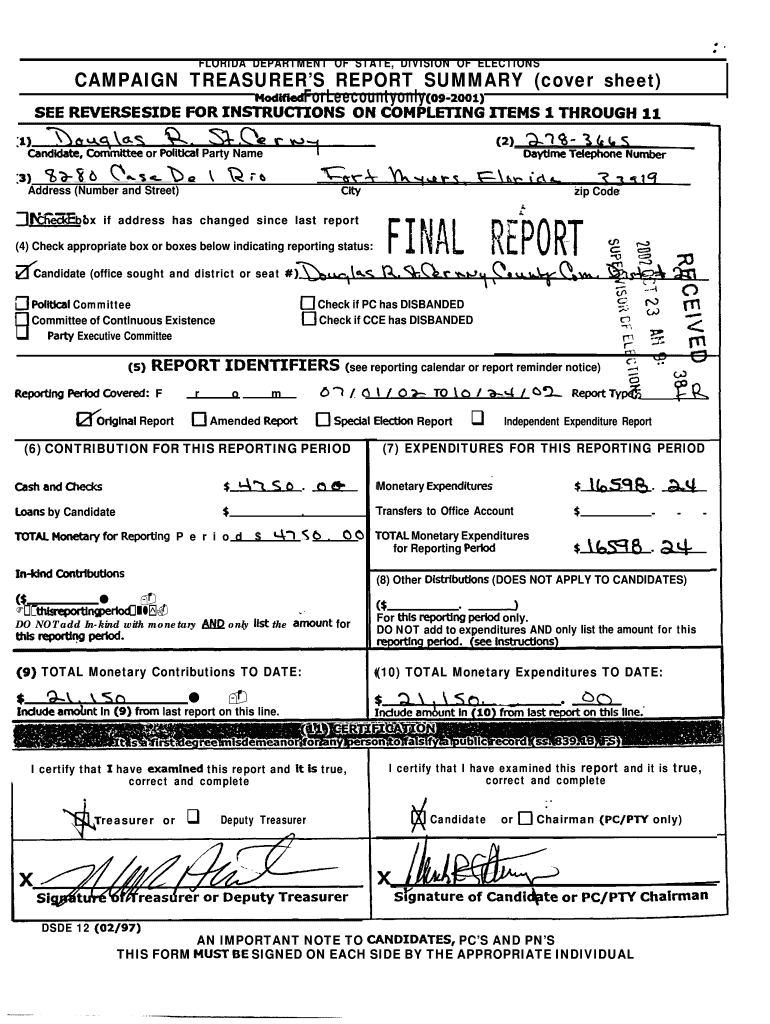 FLORIDA DEPARTMENT OF STATE, DIVISION OF ELECTIONS
CAMPAIGN TREASURER'S REPORT SUMMARY (cover sheet)
ModifiedForLeecountyonly(09-2001)
SEE REVERSESIDE FOR INSTRUCTIONS ON COMPLETING ITEMS 1 THROUGH 11
1) Douglas R. St.Cerny (2) 278-3665
Candidate, Committee or Political Party Name Daytime Telephone Number
3) 8280 Case Del Rio Fort Myers, Florida 33919
Address (Number and Street) City zip Code
box if address has changed since last report
FINAL REPORT
(4) Check appropriate box or boxes below indicating reporting status:
Candidate (office sought and district or seat #) Douglas R. St.Cerny, County Com. District 2
RECEIVED
2002 OCT 23 AM 9: 38
SUPERVISOR OF ELECTIONS
Political Committee Check if PC has DISBANDED
Committee of Continuous Existence Check if CCE has DISBANDED
Party Executive Committee
(5) REPORT IDENTIFIERS (see reporting calendar or report reminder notice)
Reporting Period Covered: F r o m 07/01/02 TO 10/24/02 Report Type: R
Original Report Amended Report Special Election Report Independent Expenditure Report
(6) CONTRIBUTION FOR THIS REPORTING PERIOD
Cash and Checks $ 4750.00
Loans by Candidate $ .
TOTAL Monetary for Reporting P e r i o d $ 4750.00
In-kind Contributions
($
thisreportingperiod
DO NOT add In-kind with monetary AND only list the amount for
this reporting period.
(7) EXPENDITURES FOR THIS REPORTING PERIOD
Monetary Expenditures $ 16598.24
Transfers to Office Account $ . - -
TOTAL Monetary Expenditures
for Reporting Period $ 16598.24
(8) Other Distributions (DOES NOT APPLY TO CANDIDATES)
($ . )
For this reporting period only.
DO NOT add to expenditures AND only list the amount for this
reporting period. (see Instructions)
(9) TOTAL Monetary Contributions TO DATE:
$ 21,150
Include amount in (9) from last report on this line.
(10) TOTAL Monetary Expenditures TO DATE:
$ 21,150.00
Include amount in (10) from last report on this line.
(11) CERTIFICATION
It is a first degree misdemeanor for any person to falsify a public record (ss. 839.13, FS)
I certify that I have examined this report and it is true,
correct and complete
Treasurer or Deputy Treasurer
X
Signature of Treasurer or Deputy Treasurer
I certify that I have examined this report and it is true,
correct and complete
Candidate or Chairman (PC/PTY only)
X
Signature of Candidate or PC/PTY Chairman
DSDE 12 (02/97)
AN IMPORTANT NOTE TO CANDIDATES, PC'S AND PN'S
THIS FORM MUST BE SIGNED ON EACH SIDE BY THE APPROPRIATE INDIVIDUAL